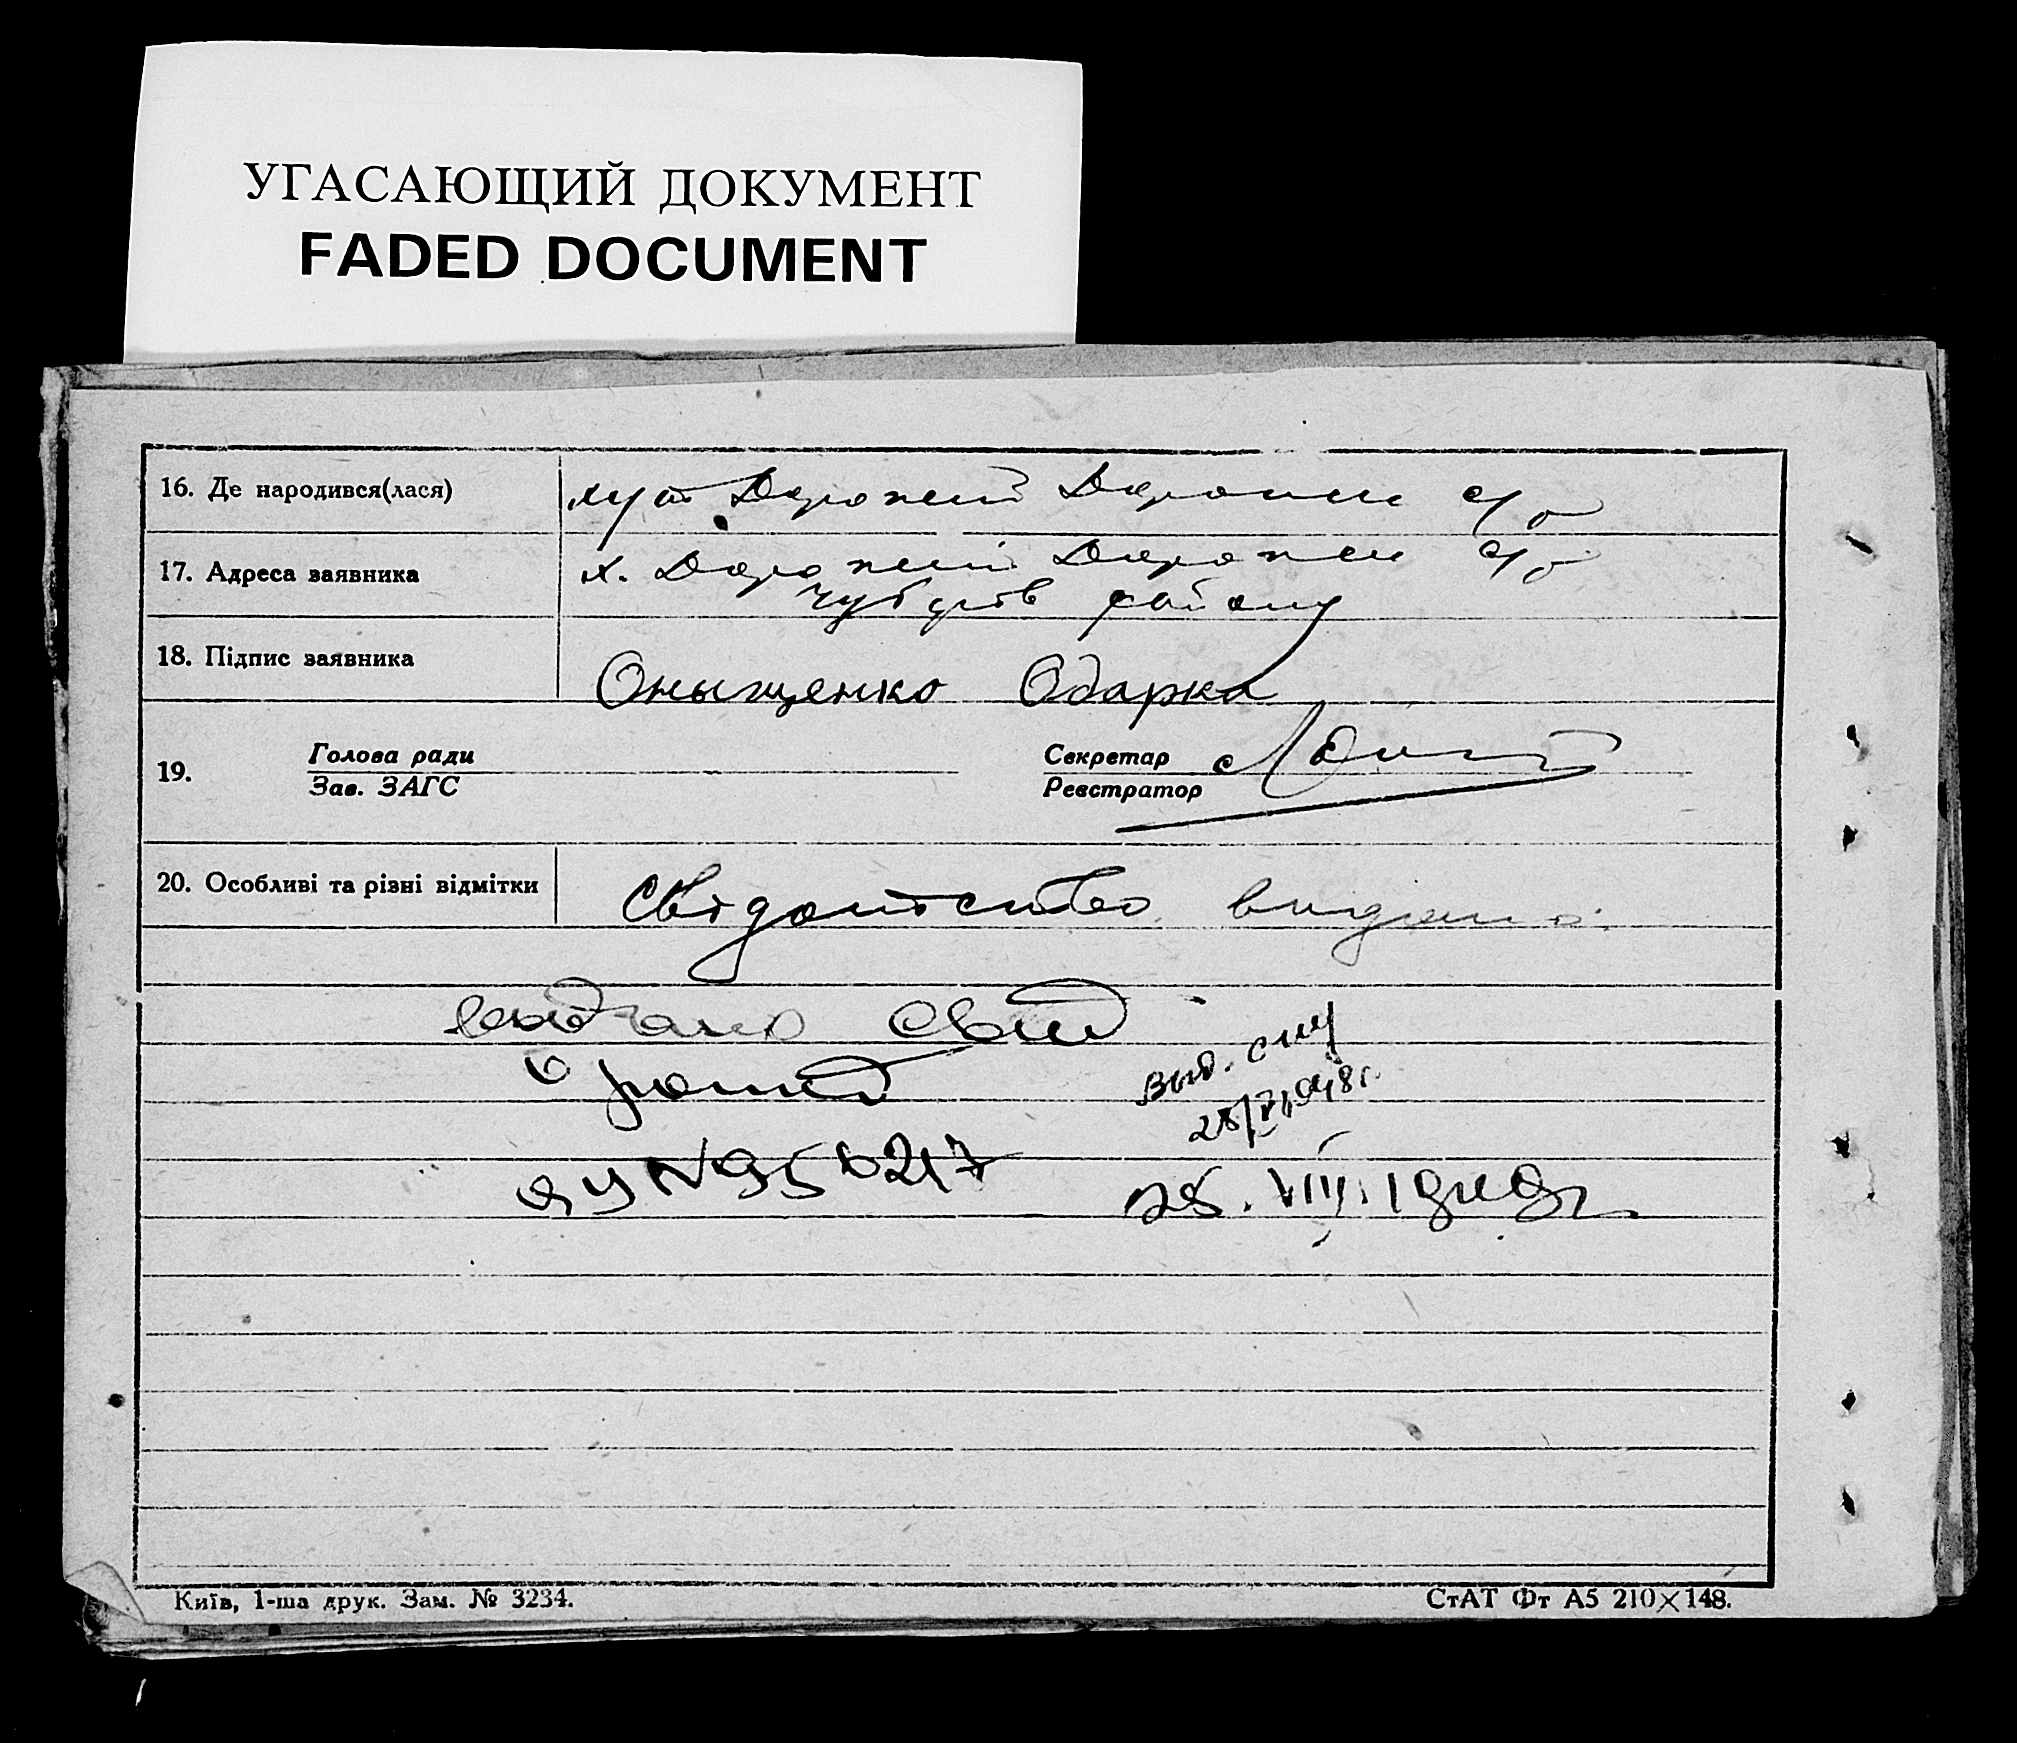 УГАСАЮЩИЙ ДОКУМЕНТ
FADED DOCUMENT
16. Де народився(лася) хут. Дорожній Дорожн с/р
17. Адреса заявника х. Дорожній Дорожн с/р
району
18. Підпис заявника Оныщенко Одарка
19. Голова ради Секретар
Зав. ЗАГС Реєстратор
20. Особливі та різні відмітки Свідоитство видано.
видано свід
о рожд
ЯУ № 950217
Выд. спр
28/ 1948г.
25. VIII. 1949г
Київ, 1-ша друк. Зам. № 3234. СтАТ Фт А5 210×148.